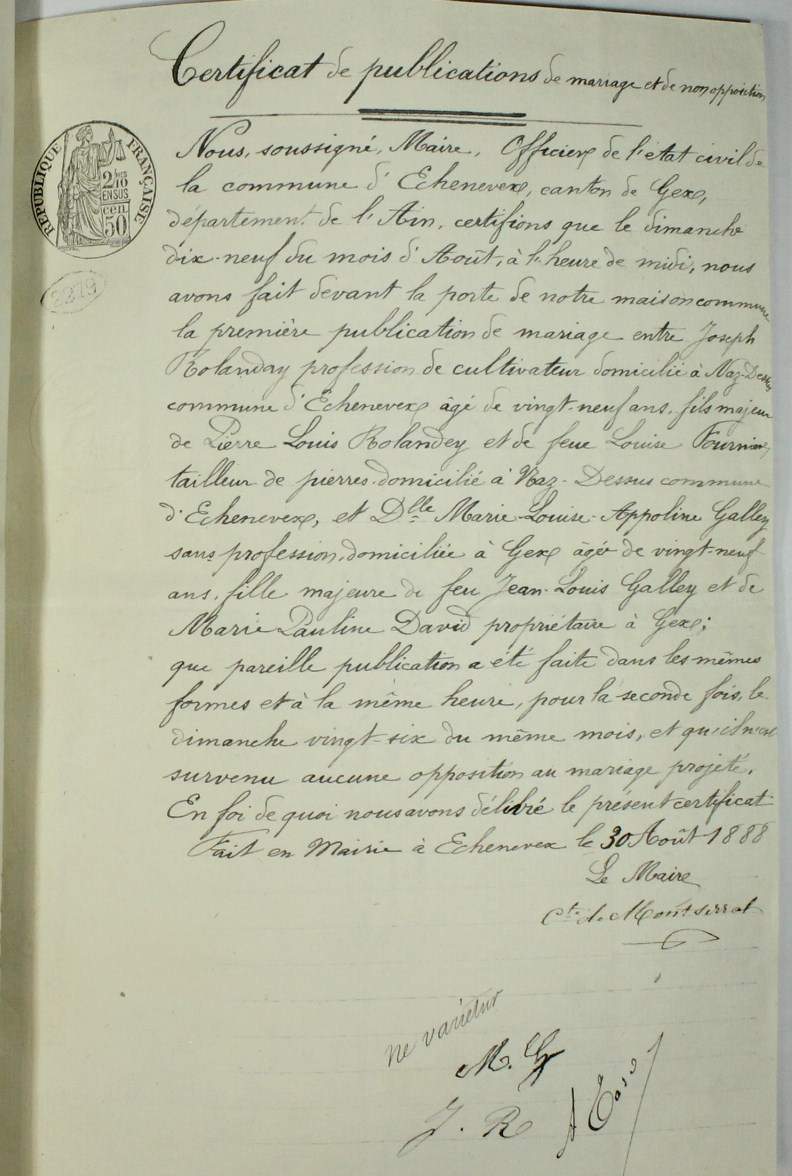 Certificat de publications de mariage et de non opposition
RÉPUBLIQUE FRANÇAISE
2/10
EN SUS
50 cen
2219
Nous, soussigné, Maire, Officier de l'état civil de
la commune d'Echenevex, canton de Gex,
département de l'Ain, certifions que le dimanche
dix-neuf du mois d'Août, à l'heure de midi, nous
avons fait devant la porte de notre maison commune
la première publication de mariage entre Joseph
Rolanday profession de cultivateur domicilié à Naz-Dessus
commune d'Echenevex âgé de vingt-neuf ans, fils majeur
de Pierre Louis Rolandey et de feue Louise Fournier,
tailleur de pierres domicilié à Naz-Dessus commune
d'Echenevex, et Dlle Marie-Louise-Appoline Galley
sans profession, domiciliée à Gex âgée de vingt-neuf
ans, fille majeure de feu Jean-Louis Galley et de
Marie Pauline David propriétaire à Gex;
que pareille publication a été faite dans les mêmes
formes et à la même heure, pour la seconde fois, le
dimanche vingt-six du même mois, et qu'il n'est
survenu aucune opposition au mariage projeté.
En foi de quoi nous avons délivré le présent certificat
Fait en Mairie à Echenevex le 30 Août 1888
Le Maire
Cte de Montserrat
ne varietur
M. G
J. R